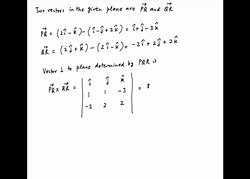 Two vectors in the given plane are P⃗R and Q⃗R
P⃗R = (2î - k̂) - (î - ĵ + 2k̂) = î + ĵ - 3k̂
Q⃗R = (2ĵ + k̂) - (2î - k̂) = -2î + 2ĵ + 2k̂
Vector ⊥ to plane determined by PQR is
î ĵ k̂
P⃗R × R⃗R = | 1 1 -3 | = 8
-2 2 2